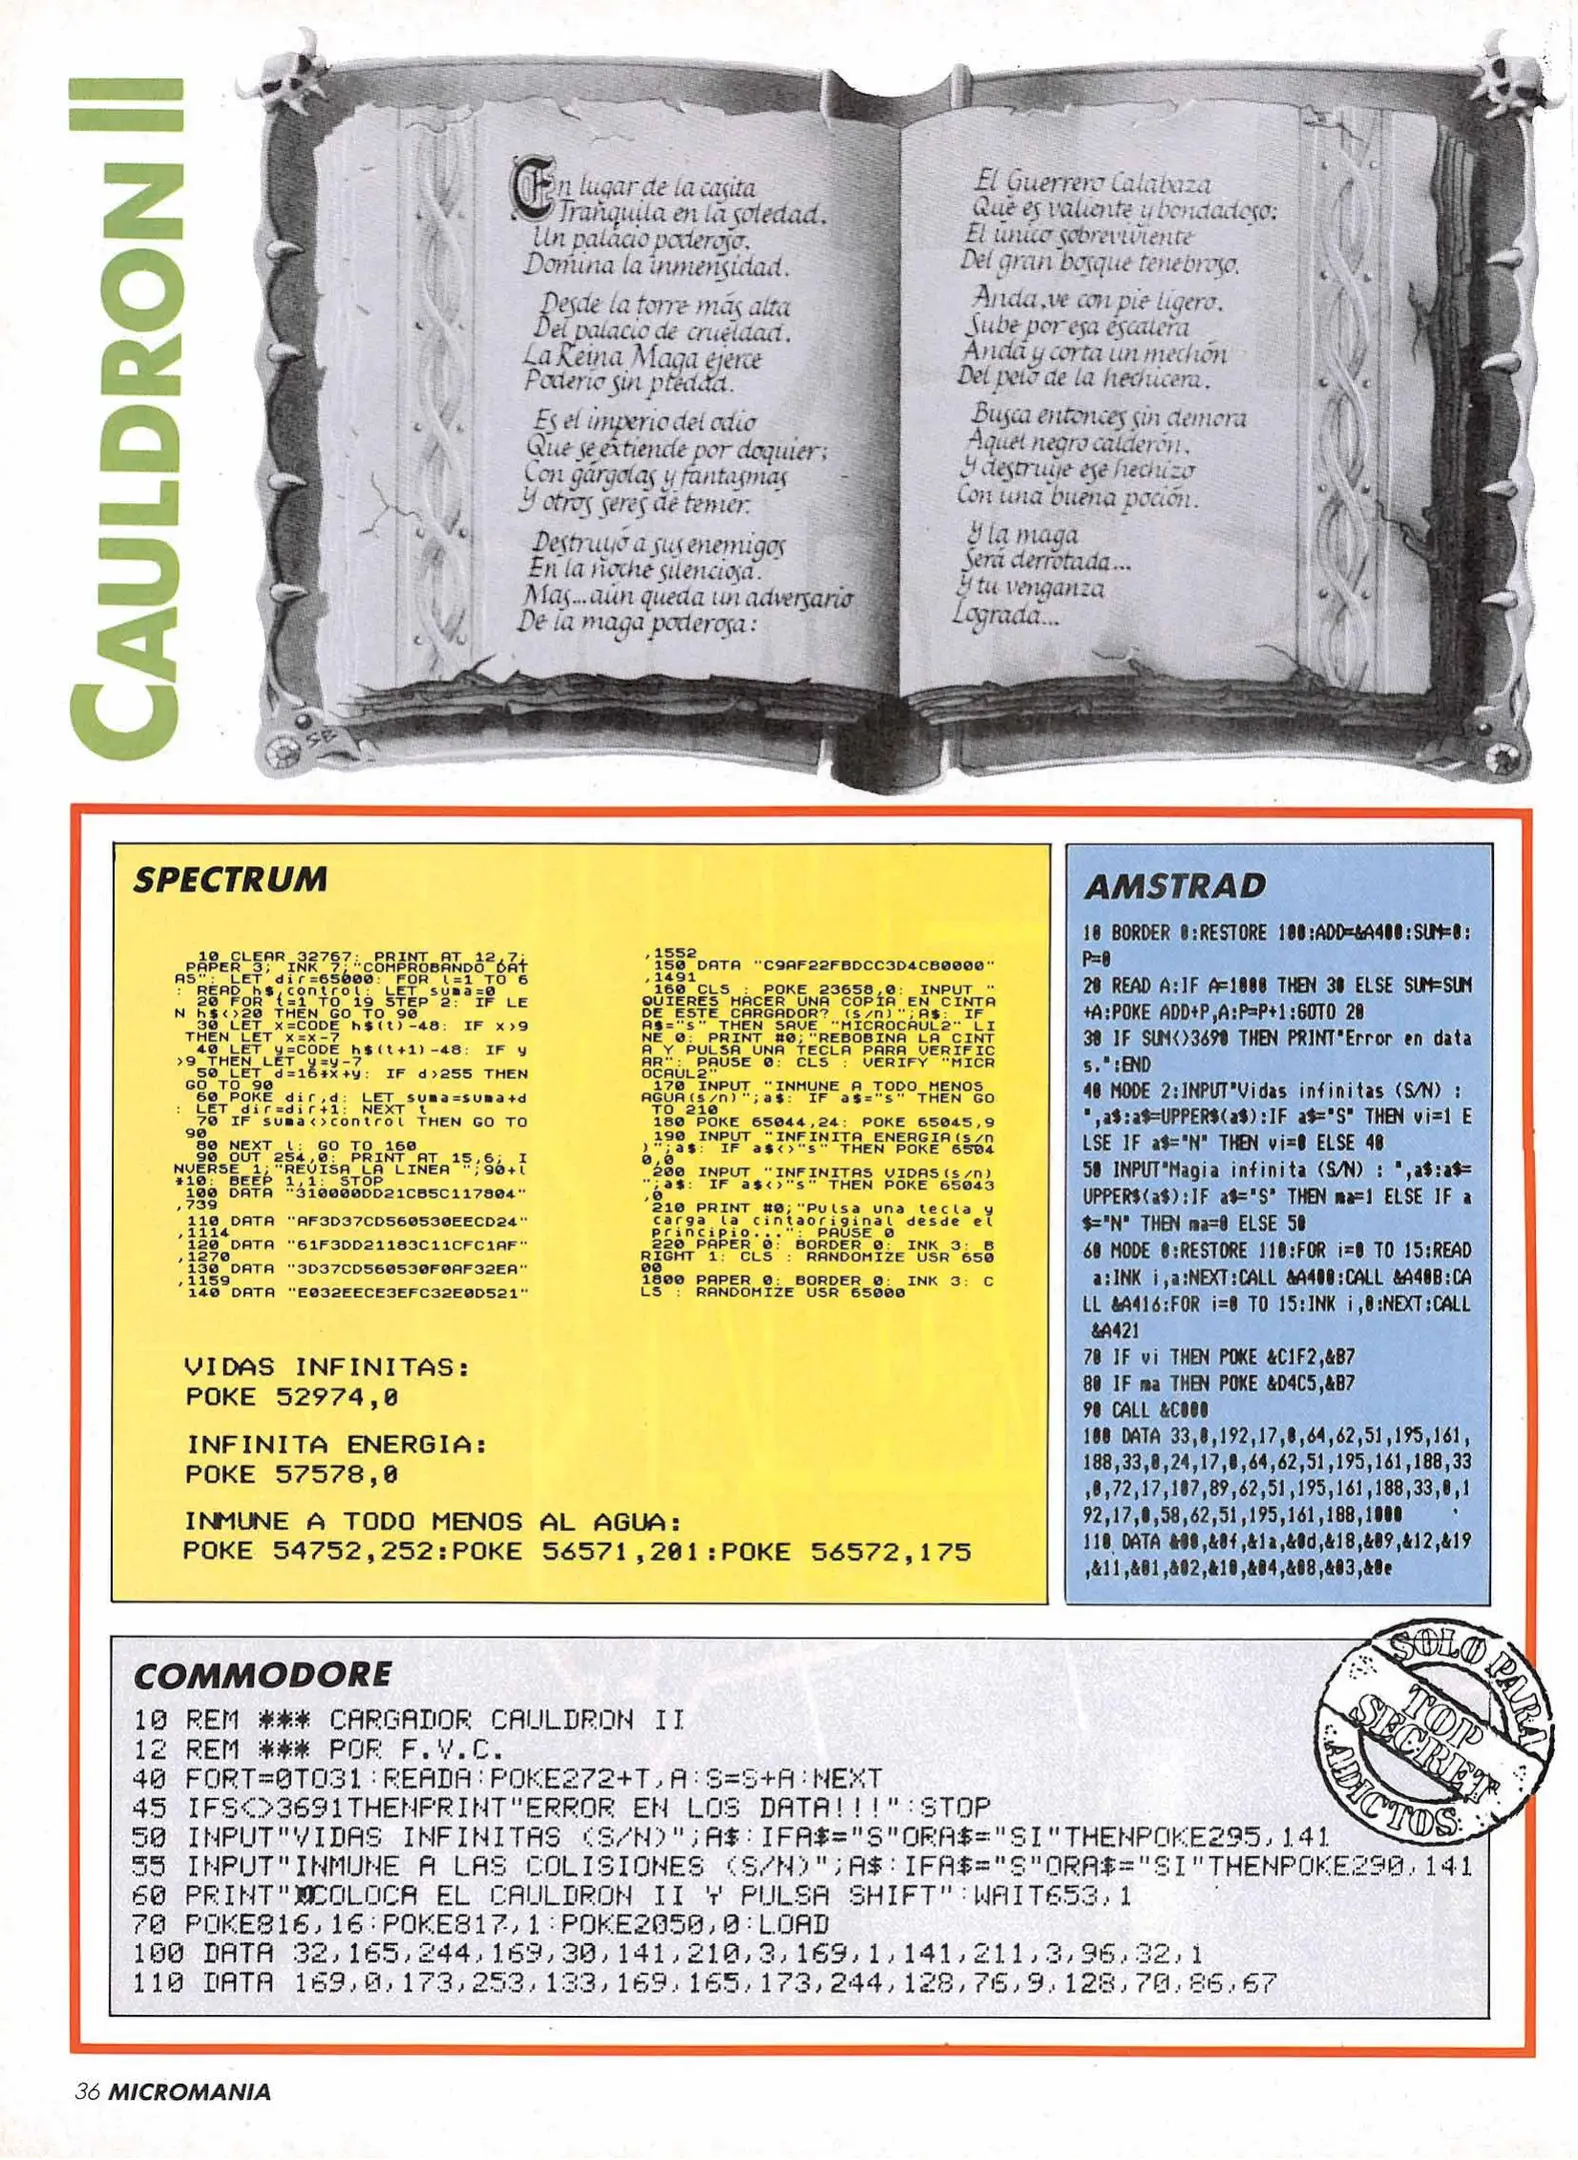 CAULDRON II
En lugar de la casita
Tranquila en la soledad.
Un palacio poderoso.
Domina la inmensidad.
Desde la torre más alta
Del palacio de crueldad.
La Reina Maga ejerce
Poderio sin piedad.
Es el imperio del odio
Que se extiende por doquier;
Con gárgolas y fantasmas
Y otros seres de temer.
Destruyó a sus enemigos
En la noche silenciosa.
Mas...aún queda un adversario
De la maga poderosa:
El Guerrero Calabaza
Que es valiente y bondadoso:
El único sobreviviente
Del gran bosque tenebroso.
Anda, ve con pie ligero.
Sube por esa escalera
Anda y corta un mechón
Del pelo de la hechicera.
Busca entonces sin demora
Aquel negro calderón.
Y destruye ese hechizo
Con una buena poción.
Y la maga
Será derrotada...
Y tu venganza
Lograda...
SPECTRUM
10 CLEAR 32767: PRINT AT 12,7;
PAPER 3; INK 7;"COMPROBANDO DAT
AS": LET dir=65000: FOR l=1 TO 6
: READ h$,control: LET suma=0
20 FOR t=1 TO 19 STEP 2: IF LE
N h$<>20 THEN GO TO 90
30 LET x=CODE h$(t)-48: IF x>9
THEN LET x=x-7
40 LET y=CODE h$(t+1)-48: IF y
>9 THEN LET y=y-7
50 LET d=16*x+y: IF d>255 THEN
GO TO 90
60 POKE dir,d: LET suma=suma+d
: LET dir=dir+1: NEXT t
70 IF suma<>control THEN GO TO
90
80 NEXT l: GO TO 160
90 OUT 254,0: PRINT AT 15,6; I
NVERSE 1;"REVISA LA LINEA ";90+l
*10: BEEP 1,1: STOP
100 DATA "310000DD21CB5C117804"
,739
110 DATA "AF3D37CD560530EECD24"
,1114
120 DATA "61F3DD21183C11CFC1AF"
,1270
130 DATA "3D37CD560530F0AF32EA"
,1159
140 DATA "E032EECE3EFC32E0D521"
,1552
150 DATA "C9AF22FBDCC3D4CB0000"
,1491
160 CLS : POKE 23658,0: INPUT "
QUIERES HACER UNA COPIA EN CINTA
DE ESTE CARGADOR? (s/n)";A$: IF
A$="s" THEN SAVE "MICROCAUL2" LI
NE 0: PRINT #0;"REBOBINA LA CINT
A Y PULSA UNA TECLA PARA VERIFIC
AR": PAUSE 0: CLS : VERIFY "MICR
OCAUL2"
170 INPUT "INMUNE A TODO MENOS
AGUA(s/n)";a$: IF a$="s" THEN GO
TO 210
180 POKE 65044,24: POKE 65045,9
190 INPUT "INFINITA ENERGIA(s/n
)";a$: IF a$<>"s" THEN POKE 6504
0,0
200 INPUT "INFINITAS VIDAS(s/n)
";a$: IF a$<>"s" THEN POKE 65043
,0
210 PRINT #0;"Pulsa una tecla y
carga la cintaoriginal desde el
principio...": PAUSE 0
220 PAPER 0: BORDER 0: INK 3: B
RIGHT 1: CLS : RANDOMIZE USR 650
00
1800 PAPER 0: BORDER 0: INK 3: C
LS : RANDOMIZE USR 65000
VIDAS INFINITAS:
POKE 52974,0
INFINITA ENERGIA:
POKE 57578,0
INMUNE A TODO MENOS AL AGUA:
POKE 54752,252:POKE 56571,201:POKE 56572,175
AMSTRAD
10 BORDER 0:RESTORE 100:ADD=&A400:SUM=0:
P=0
20 READ A:IF A=1000 THEN 30 ELSE SUM=SUM
+A:POKE ADD+P,A:P=P+1:GOTO 20
30 IF SUM<>3690 THEN PRINT"Error en data
s.":END
40 MODE 2:INPUT"Vidas infinitas (S/N) :
",a$:a$=UPPER$(a$):IF a$="S" THEN vi=1 E
LSE IF a$="N" THEN vi=0 ELSE 40
50 INPUT"Magia infinita (S/N) : ",a$:a$=
UPPER$(a$):IF a$="S" THEN ma=1 ELSE IF a
$="N" THEN ma=0 ELSE 50
60 MODE 0:RESTORE 110:FOR i=0 TO 15:READ
a:INK i,a:NEXT:CALL &A400:CALL &A40B:CA
LL &A416:FOR i=0 TO 15:INK i,0:NEXT:CALL
&A421
70 IF vi THEN POKE &C1F2,&B7
80 IF ma THEN POKE &D4C5,&B7
90 CALL &C000
100 DATA 33,0,192,17,0,64,62,51,195,161,
188,33,0,24,17,0,64,62,51,195,161,188,33
,0,72,17,107,89,62,51,195,161,188,33,0,1
92,17,0,58,62,51,195,161,188,1000
110 DATA &00,&0f,&1a,&0d,&18,&09,&12,&19
,&11,&01,&02,&10,&04,&08,&03,&0e
COMMODORE
10 REM *** CARGADOR CAULDRON II
12 REM *** POR F.V.C.
40 FORT=0TO31:READA:POKE272+T,A:S=S+A:NEXT
45 IFS<>3691THENPRINT"ERROR EN LOS DATA!!!":STOP
50 INPUT"VIDAS INFINITAS (S/N)";A$:IFA$="S"ORA$="SI"THENPOKE295,141
55 INPUT"INMUNE A LAS COLISIONES (S/N)";A$:IFA$="S"ORA$="SI"THENPOKE290,141
60 PRINT"COLOCA EL CAULDRON II Y PULSA SHIFT":WAIT653,1
70 POKE816,16:POKE817,1:POKE2050,0:LOAD
100 DATA 32,165,244,169,30,141,210,3,169,1,141,211,3,96,32,1
110 DATA 169,0,173,253,133,169,165,173,244,128,76,9,128,70,86,67
SOLO PARA
TOP
SECRET
ADICTOS
36 MICROMANIA